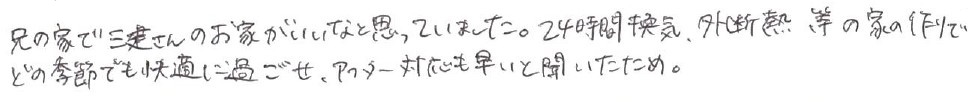 兄の家で三建さんのお家がいいなと思っていました。24時間換気、外断熱 等の家の作りで
どの季節でも快適に過ごせ、アフター対応も早いと聞いたため。